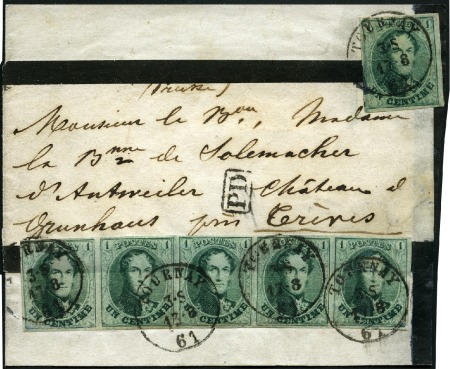 TOURNAY
3-S
8
1
UN CENTIME
(Prusse)
Monsieur le Bon, Madame
la Bnne de Solemacher
d'Antweiler Château d
PD
Grunhaus près Trèves
1 POSTES 1 POSTES 1 POSTES 1 POSTES 1 POSTES 1
UN CENTIME UN CENTIME UN CENTIME UN CENTIME UN CENTIME
TOURNAY
3-S
8
61
TOURNAY
8
TOURNAY
8
61